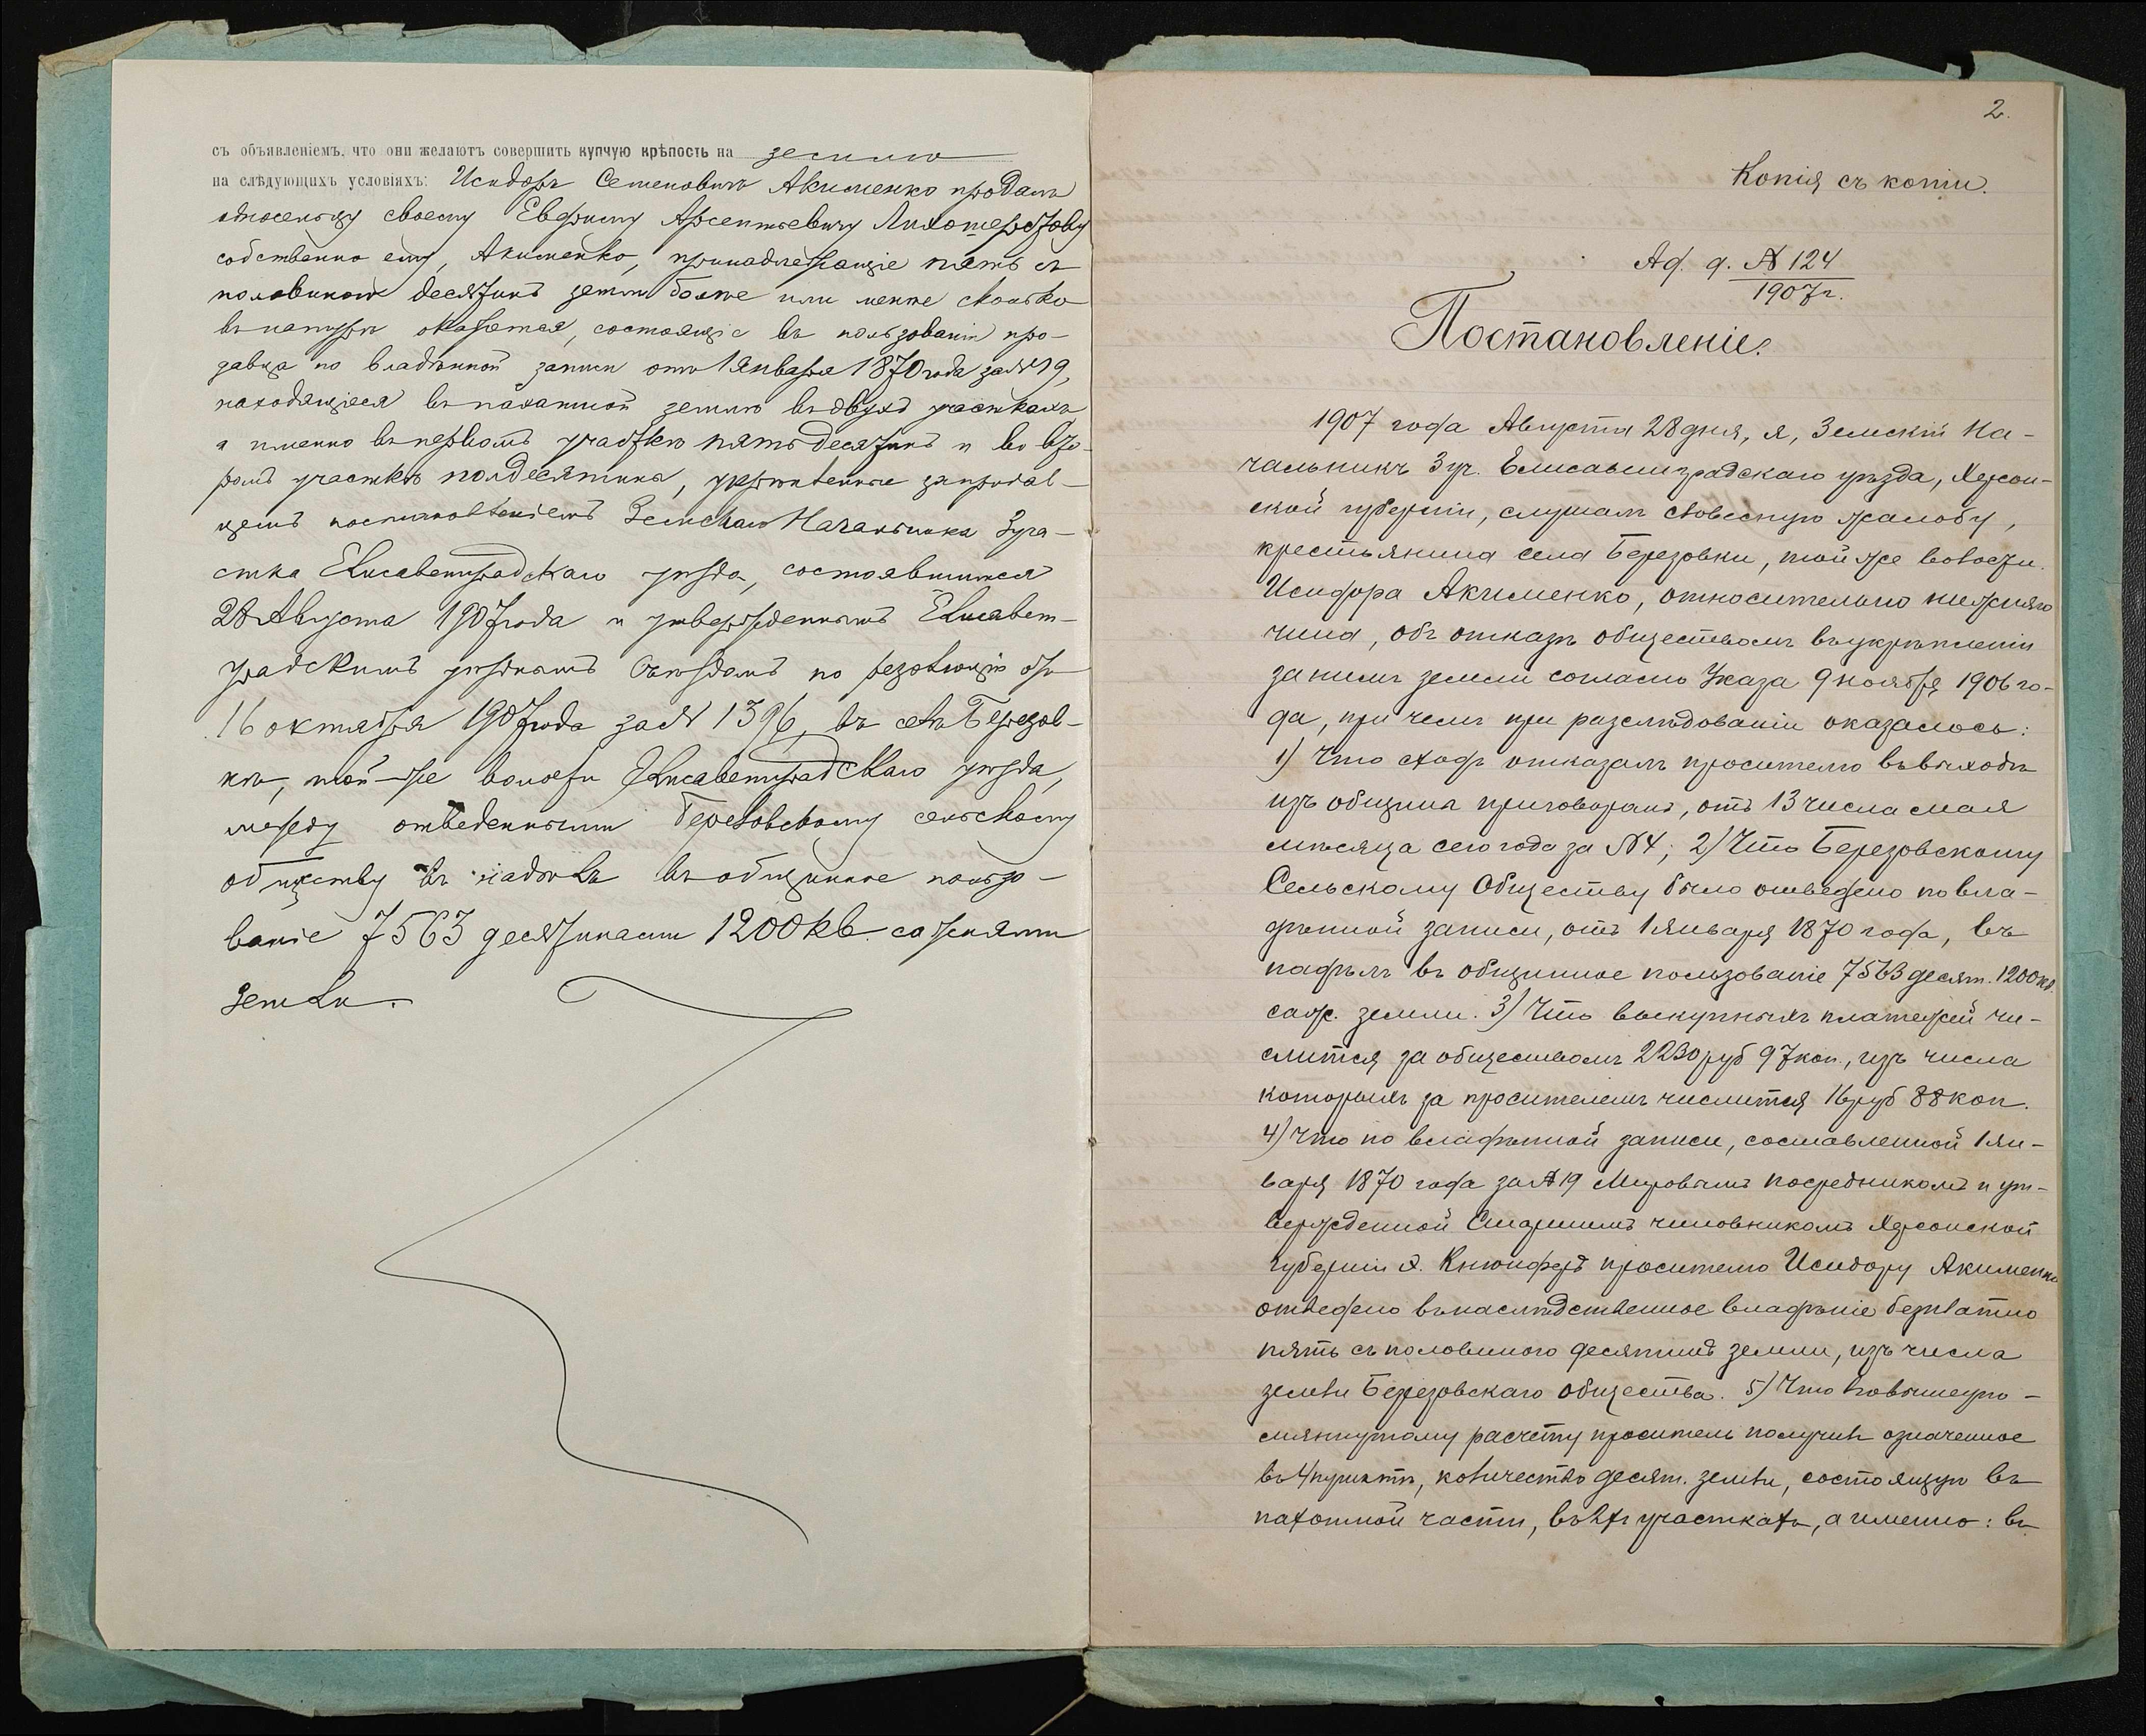 съ объявленіемъ, что они желаютъ совершить купчую крѣпость на землю
на слѣдующихъ условіяхъ: Исидоръ Семеновичъ Акименко продалъ
односельцу своему Евфиму Арсентьевичу Лихошерстову
собственно ему, Акименко, принадлежащіе пять съ
половиною десятинъ земли болѣе или менѣе сколько
въ натурѣ окажется, состоящіе въ пользованіи про-
давца по владѣнной записи отъ 1 Января 1870 года за № 19,
находящіеся въ пахатной землѣ въ двухъ участкахъ
а именно въ первомъ участкѣ пять десятинъ и во вто-
ромъ участкѣ полдесятины, укрѣпленные за продав-
цемъ постановленіемъ Земскаго Начальника 3 уча-
стка Елисаветградскаго уѣзда, состоявшимся
28 Августа 1907 года и утвержденнымъ Елисавет-
градскимъ уѣзднымъ Съѣздомъ по резолюціи отъ
16 октября 1907 года за № 1396, въ селѣ Березов-
кѣ, той-же волости Елисаветградскаго уѣзда,
между отведенными Березовскому сельскому
обществу въ надѣлъ въ общинное пользо-
ваніе 7563 десятинами 1200 кв. саженями
земли.
2.
Копія съ копіи.
Ад. д. № 124
1907 г.
Постановленіе.
1907 года Августа 28 дня, я, Земскій На-
чальникъ 3 уч. Елисаветградскаго уѣзда, Херсон-
ской губерніи, слушалъ словесную жалобу,
крестьянина села Березовки, той же волости
Исидора Акименко, относительно нижняго
чина, объ отказѣ обществомъ въ укрѣпленіи
за нимъ земли согласно Указа 9 ноября 1906 го-
да, при чемъ при разслѣдованіи оказалось:
1) Что сходъ отказалъ просителю въ выходѣ
изъ общины приговоромъ, отъ 13 числа мая
мѣсяца сего года за № 4; 2) Что Березовскому
Сельскому Обществу было отведено по вла-
дѣнной записи, отъ 1 января 1870 года, въ
надѣлъ въ общинное пользованіе 7563 десят. 1200 кв.
саж. земли. 3) Что выкупныхъ платежей чи-
слится за обществомъ 2230 руб 97 коп., изъ числа
которыхъ за просителемъ числится 16 руб 88 коп.
4) Что по владѣнной записи, составленной 1 ян-
варя 1870 года за № 19 Мировымъ посредникомъ и ут-
вержденной Старшимъ чиновникомъ Херсонской
губерніи просителю Исидору Акименко
отведено въ наслѣдственное владѣніе безплатно
пять съ половиною десятинъ земли, изъ числа
земли Березовскаго общества. 5) Что по вышеупо-
мянутому расчету проситель получилъ означенное
въ 4 пунктѣ, количество десят. земли, состоящую въ
пахотной части, въ 2хъ участкахъ, а именно: въ